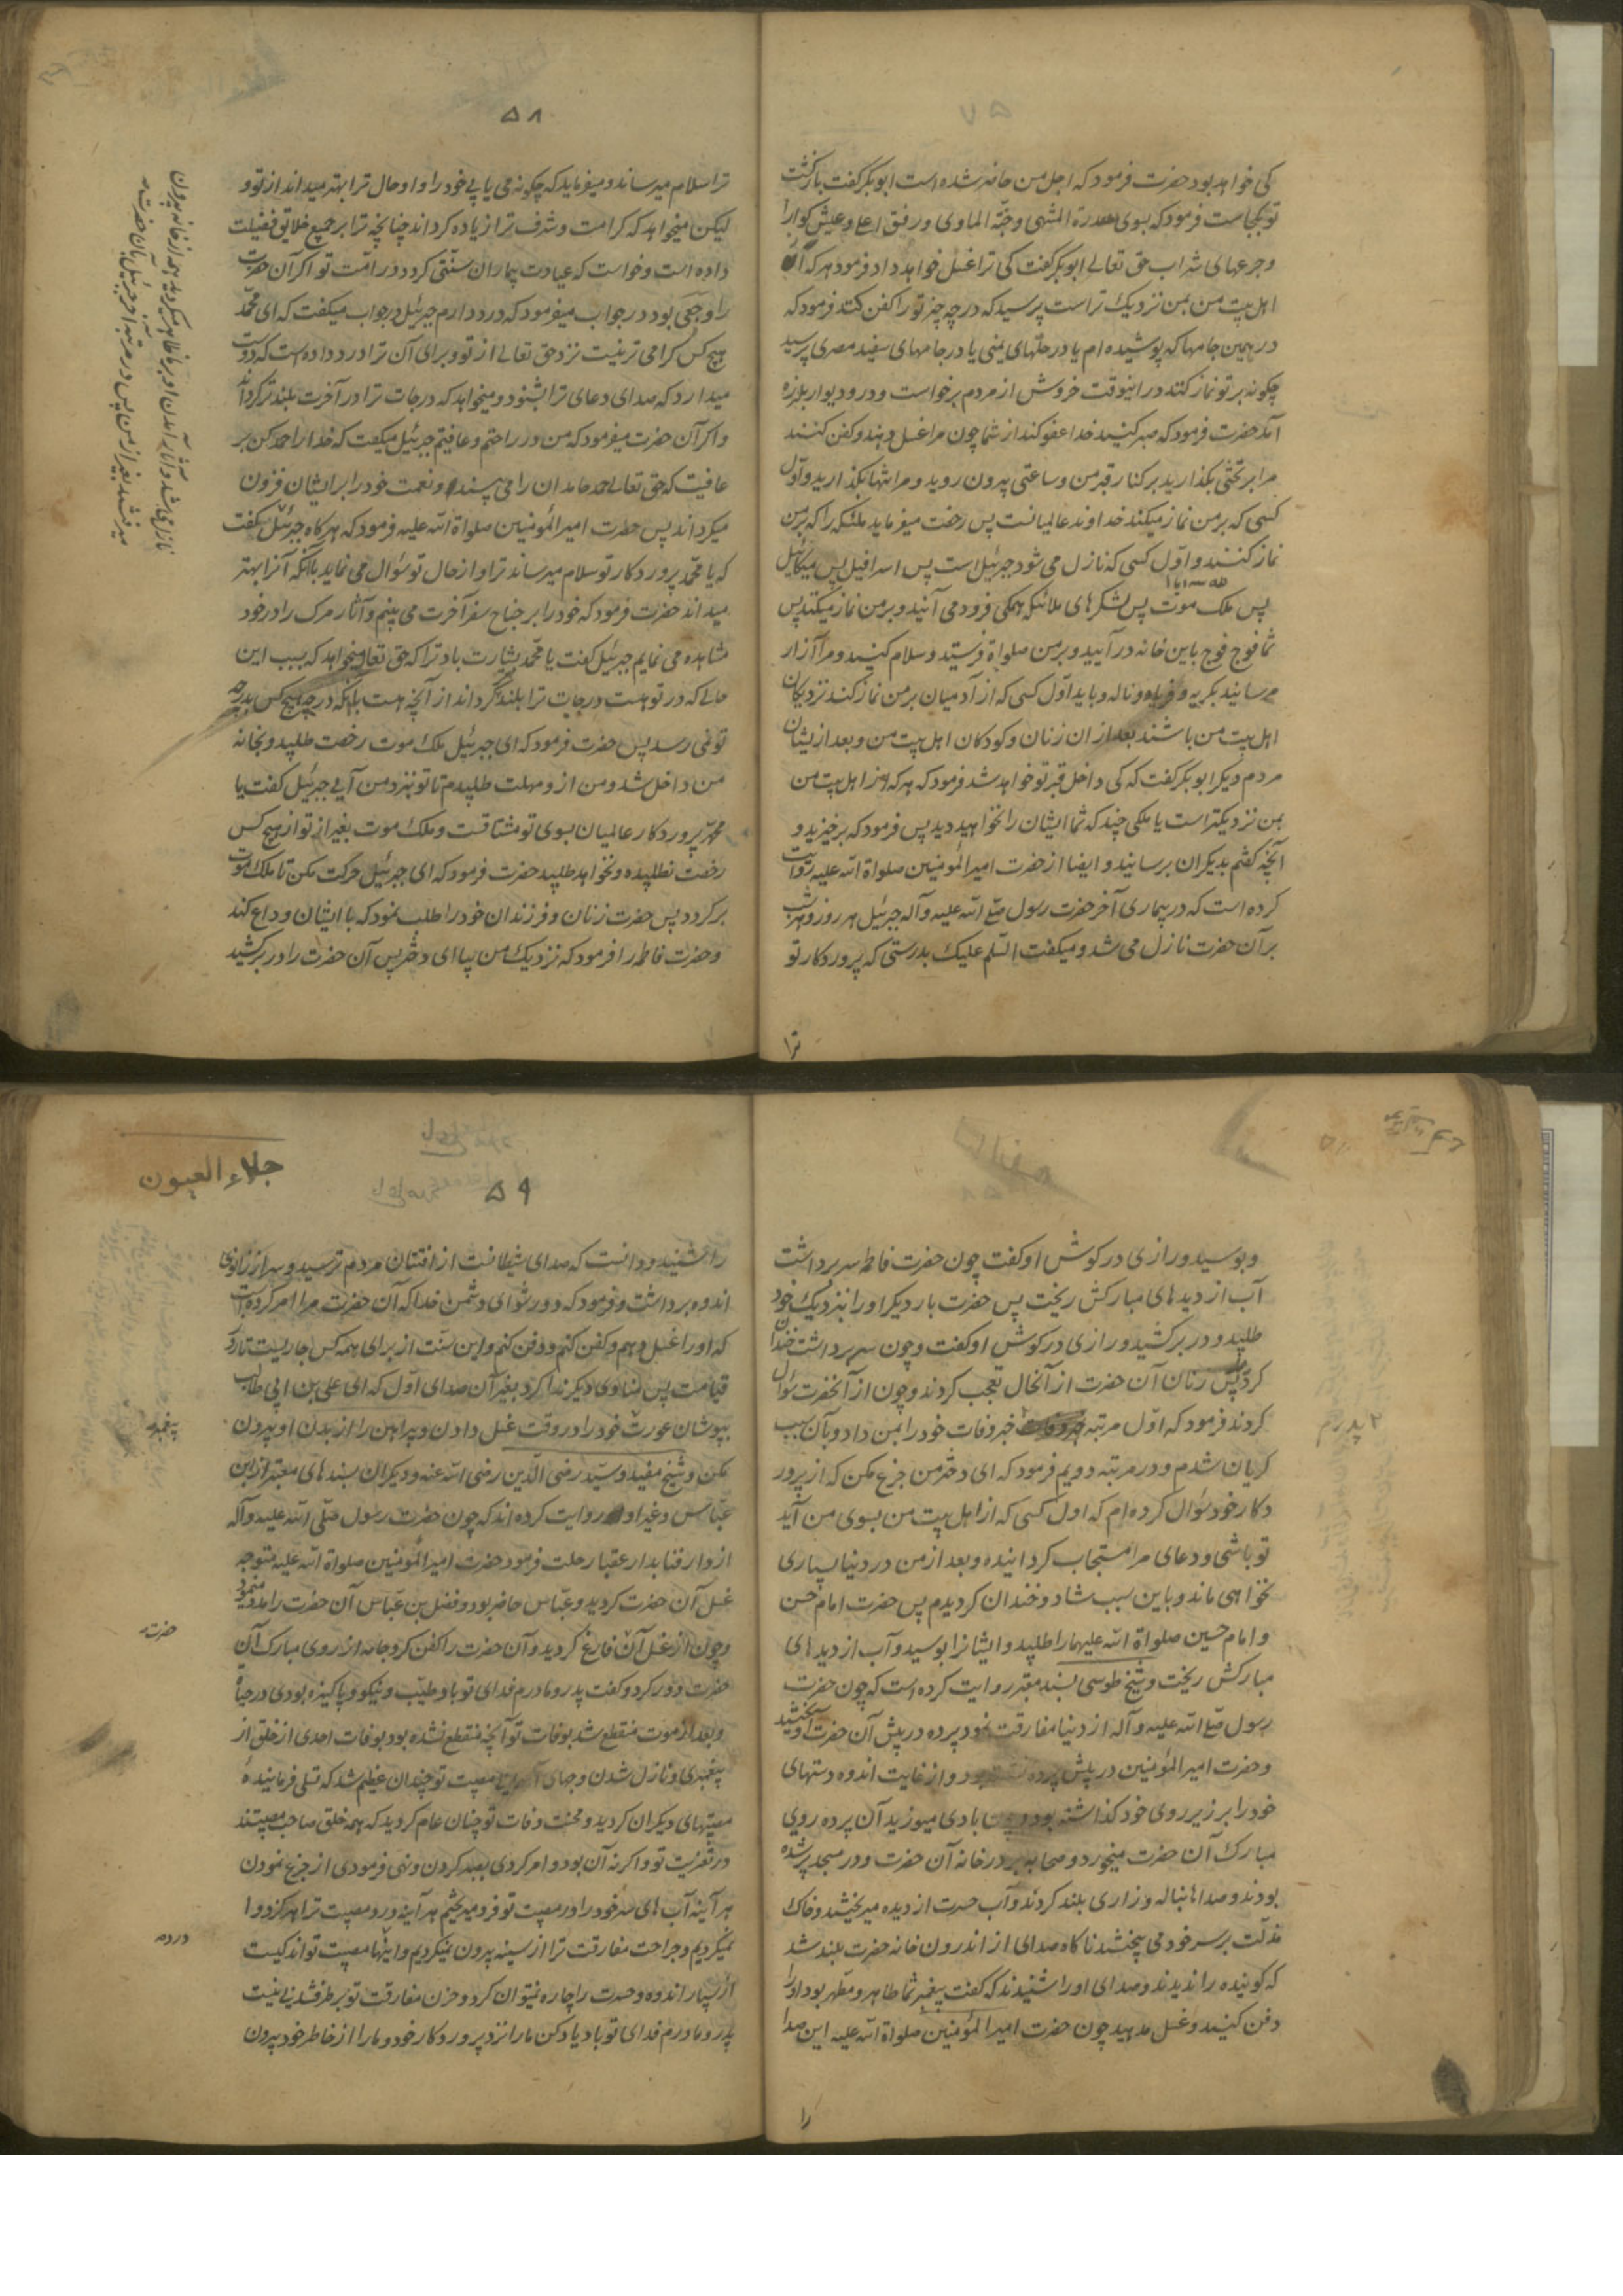 ۵۸
کی خواهد بود حضرت فرمود که اجل من حاضر شده است ابوبکر گفت بازگشت
تو بکجاست فرمود که بسوی سدرة المنتهی و جنّة الماوی و رفیق اعلی و عیش گوارا
و جرعهای شراب حق تعالی ابوبکر گفت کی ترا غسل خواهد داد فرمود هر که از
اهل بیت من بمن نزدیک تر است پرسید که در چه چیز تو را کفن کنند فرمود که
در همین جامها که پوشیده ام یا در حلّهای یمنی یا در جامهای سفید مصری پرسید
چکونه بر تو نماز کنند در اینوقت خروش از مردم برخواست و در و دیوار بلرزه
آمد حضرت فرمود که صبر کنید خدا عفو کند از شما چون مرا غسل دهند و کفن کنند
مرا بر تختی بگذارید بر کنار قبر من و ساعتی بیرون روید و مرا تنها بگذارید و اوّل
کسی که بر من نماز میکند خداوند عالمیانست پس رخصت میفرماید ملئکه را که بر من
نماز کنند و اوّل کسی که نازل می شود جبرئیل است پس اسرافیل پس میکائیل
پس ملک موت پس لشکرهای ملائکه همکی فرود می آیند و بر من نماز میکنند پس
شما فوج فوج باین خانه در آیید و بر من صلواة فرستید و سلام کنید و مرا آزار
مرسانید بگریه و فریاد و ناله و باید اوّل کسی که از آدمیان بر من نماز کند نزدیکان
اهل بیت من باشند بعد از ان زنان و کودکان اهل بیت من و بعد از یشان
مردم دیگر ابوبکر گفت که کی داخل قبر تو خواهد شد فرمود که هر که از اهل بیت من
بمن نزدیکتر است با ملکی چند که شما ایشان را نخواهید دید پس فرمود که برخیزید و
آنچه گفتم بدیکران برسانید و ایضا از حضرت امیر المؤمنین صلواة الله علیه روایت
کرده است که در بیماری آخر حضرت رسول صلی الله علیه و آله جبرئیل هر روز و هر شب
بر آن حضرت نازل می شد و میکفت السّلم علیک بدرستی که پروردکار تو
ترا
ترا سلام میرساند و میفرماید که چکونه می یابی خود را و او حال ترا بهتر میداند از تو و
لیکن میخواهد که کرامت و شرف ترا زیاده کرداند چنانچه ترا بر جمیع خلایق فضیلت
داده است و خواست که عیادت بیماران سنّتی کردد در امّت تو اکر آن حضرت
را وجعی بود در جواب میفرمود که درد دارم جبرئیل در جواب میکفت که ای محمّد
هیچ کس کرامی تر نیست نزد حق تعالی از تو و برای آن ترا درد داده است که دوست
میدارد که صدای دعای ترا بشنود و میخواهد که درجات ترا در آخرت بلندتر کرداند
و اکر آن حضرت میفرمود که من در راحتم و عافیتم جبرئیل میکفت که خدا را حمد کن بر
عافیت که حق تعالی حمد حامدان را می پسندد و نعمت خود را بر ایشان فزون
میکرداند پس حضرت امیر المؤمنین صلواة الله علیه فرمود که هر کاه جبرئیل میکفت
که یا محمّد پروردکار تو سلام میرساند ترا و از حال تو سؤال می نماید باآنکه آنرا بهتر
میداند حضرت فرمود که خود را بر جناح سفر آخرت می بینم و آثار مرک را در خود
مشاهده می نمایم جبرئیل کفت یا محمّد بشارت باد ترا که حق تعالی میخواهد که بسبب این
حالی که در تو هست درجات ترا بلند کرداند از آنچه هست باآنکه درجه هیچ کس بدرجه
تو نمی رسد پس حضرت فرمود که ای جبرئیل ملک موت رخصت طلبید و بخانه
من داخل شد و من از و مهلت طلبیدم تا تو بنزد من آیی جبرئیل کفت یا
محمّد پروردکار عالمیان بسوی تو مشتاقست و ملک موت بغیر از تو از هیچ کس
رخصت نطلبیده و نخواهد طلبید حضرت فرمود که ای جبرئیل حرکت مکن تا ملک موت
برکردد پس حضرت زنان و فرزندان خود را طلب نمود که با ایشان وداع کند
و حضرت فاطمه را فرمود که نزدیک من بیا ای دختر پس آن حضرت را در بر کشید
جلاء العیون
۵۹
و بوسید و رازی در کوش او کفت چون حضرت فاطمه سر برداشت
آب از دیدهای مبارکش ریخت پس حضرت بار دیکر او را بنزدیک خود
طلبید و در بر کشید و رازی در کوش او کفت و چون سر برداشت خندان
کردید پس زنان آن حضرت از آنحال تعجب کردند و چون از آنحضرت سؤال
کردند فرمود که اوّل مرتبه خبر وفات خود را بمن داد و بآن سبب
کریان شدم و در مرتبه دویم فرمود که ای دختر من جزع مکن که از پرور
دکار خود سؤال کرده ام که اول کسی که از اهل بیت من بسوی من آید
تو باشی و دعای مرا مستجاب کردانیده و بعد از من در دنیا بسیاری
نخواهی ماند و باین سبب شاد و خندان کردیدم پس حضرت امام حسن
و امام حسین صلواة الله علیهما را طلبید و ایشانرا بوسید و آب از دیدهای
مبارکش ریخت و شیخ طوسی بسند معتبر روایت کرده است که چون حضرت
رسول صلی الله علیه و آله از دنیا مفارقت نمود پرده در پیش آن حضرت کشید
و حضرت امیر المؤمنین در پیش پرده نشسته بود و از غایت اندوه دستهای
خود را بر زیر روی خود کذاشته بود و چون بادی میوزید آن پرده بر روی
مبارک آن حضرت میخورد و صحابه بر در خانه آن حضرت و در مسجد پر شده
بودند و صدا ها بناله و زاری بلند کردند و آب حسرت از دیده میریختند و خاک
مذلّت بر سر خود می بیختند ناکاه صدای از اندرون خانه حضرت بلند شد
که کوینده را ندیدند و صدای او را شنیدند که کفت پیغمبر شما طاهر و مطهر بود او را
دفن کنید و غسل مدهید چون حضرت امیر المؤمنین صلواة الله علیه این صدا
را
را شنید و دانست که صدای شیطانست از افتتان مردم ترسید و سر از زانوی
اندوه برداشت و فرمود که دور شو ای دشمن خدا که آن حضرت مرا امر کرده است
که او را غسل دهم و کفن کنم و دفن کنم و این سنّت از برای همه کس جاریست تا روز
قیامت پس منادی دیکر ندا کرد بغیر آن صدای اوّل که ای علی بن ابی طالب
بپوشان عورت خود را در وقت غسل دادن و پیراهن را از بدن او بیرون
پیغمبر
مکن و شیخ مفید و سیّد رضی الدّین رضی الله عنه و دیکران بسندهای معتبر از ابن
عبّاس و غیر او روایت کرده اند که چون حضرت رسول صلّی الله علیه و آله
از دار فنا بدار عقبا رحلت فرمود حضرت امیر المؤمنین صلواة الله علیه متوجه
غسل آن حضرت کردید و عبّاس حاضر بود و فضل بن عبّاس آن حضرت را مدد مینمود
و چون از غسل آن فارغ کردید و آن حضرت را کفن کرد و جامه از روی مبارک آن
حضرت
حضرت دور کرد و کفت پدر و مادرم فدای تو باد طیّب و نیکو و پاکیزه بودی در حیاة
و بعد از موت منقطع شد بوفات تو آنچه منقطع نشده بود بوفات احدی از خلق از
پیغمبری و نازل شدن وحیهای مصیبت تو چندان عظیم شد که تسلی فرماینده
مصیبتهای دیکران کردید و محنت وفات تو چنان عام کردید که همه خلق صاحب مصیبتند
در تعزیت تو و اکر نه آن بود و امر کردی بصبر کردن و نهی فرمودی از جزع نمودن
هر آینه آب های سر خود را در مصیبت تو فرو میریختیم هر آینه درد مصیبت ترا هرکز دوا
نمیکردیم و جراحت مفارقت ترا از سینه بیرون نمیکردیم و اینها مصیبت تو اندکیست
از بسیار اندوه و حسرت را چاره نمیتوان کرد و حزن مفارقت تو برطرف شدنی نیست
پدر و مادرم فدای تو باد یاد کن ما را نزد پروردکار خود و ما را از خاطر خود بیرون